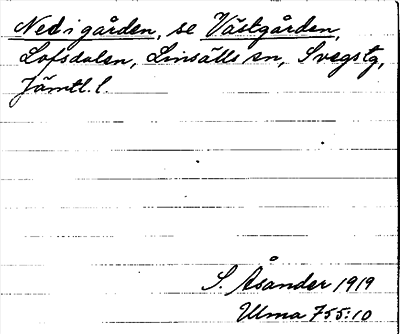 Ned i gården, se Västgården,
Lofsdalen, Linsälls sn, Svegs tg,
Jämtl. l.
S. Åsander 1919
Ulma 755:10